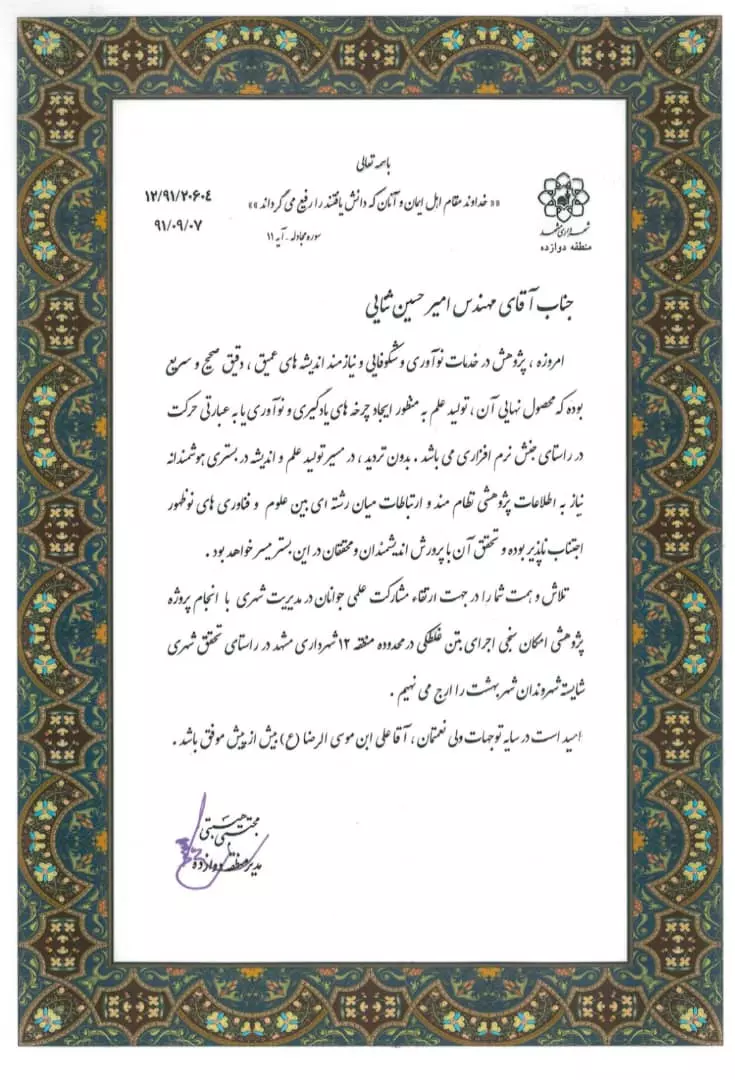 باسمه تعالی
«« خداوند مقام اهل ایمان و آنان که دانش یافتند را رفیع می گرداند »»
سوره مجادله - آیه ۱۱
۱۲/۹۱/۲۰۶۰۴
۹۱/۰۹/۰۷
شهرداری مشهد
منطقه دوازده
جناب آقای مهندس امیر حسین ثنایی
امروزه ، پژوهش در خدمات نوآوری و شکوفایی و نیازمند اندیشه های عمیق ، دقیق صحیح و سریع
بوده که محصول نهایی آن ، تولید علم به منظور ایجاد چرخه های یادگیری و نوآوری یا به عبارتی حرکت
در راستای جنبش نرم افزاری می باشد . بدون تردید ، در مسیر تولید علم و اندیشه در بستری هوشمندانه
نیاز به اطلاعات پژوهشی نظام مند و ارتباطات میان رشته ای بین علوم و فناوری های نوظهور
اجتناب ناپذیر بوده و تحقق آن با پرورش اندیشمندان و محققان در این بستر میسر خواهد بود .
تلاش و همت شما را در جهت ارتقاء مشارکت علمی جوانان در مدیریت شهری با انجام پروژه
پژوهشی امکان سنجی اجرای بتن غلطکی در محدوده منطقه ۱۲ شهرداری مشهد در راستای تحقق شهری
شایسته شهروندان شهر بهشت را ارج می نهیم .
امید است در سایه توجهات ولی نعمتمان ، آقا علی ابن موسی الرضا (ع) بیش از پیش موفق باشد .
مجتبی هیبتی
مدیر منطقه دوازده